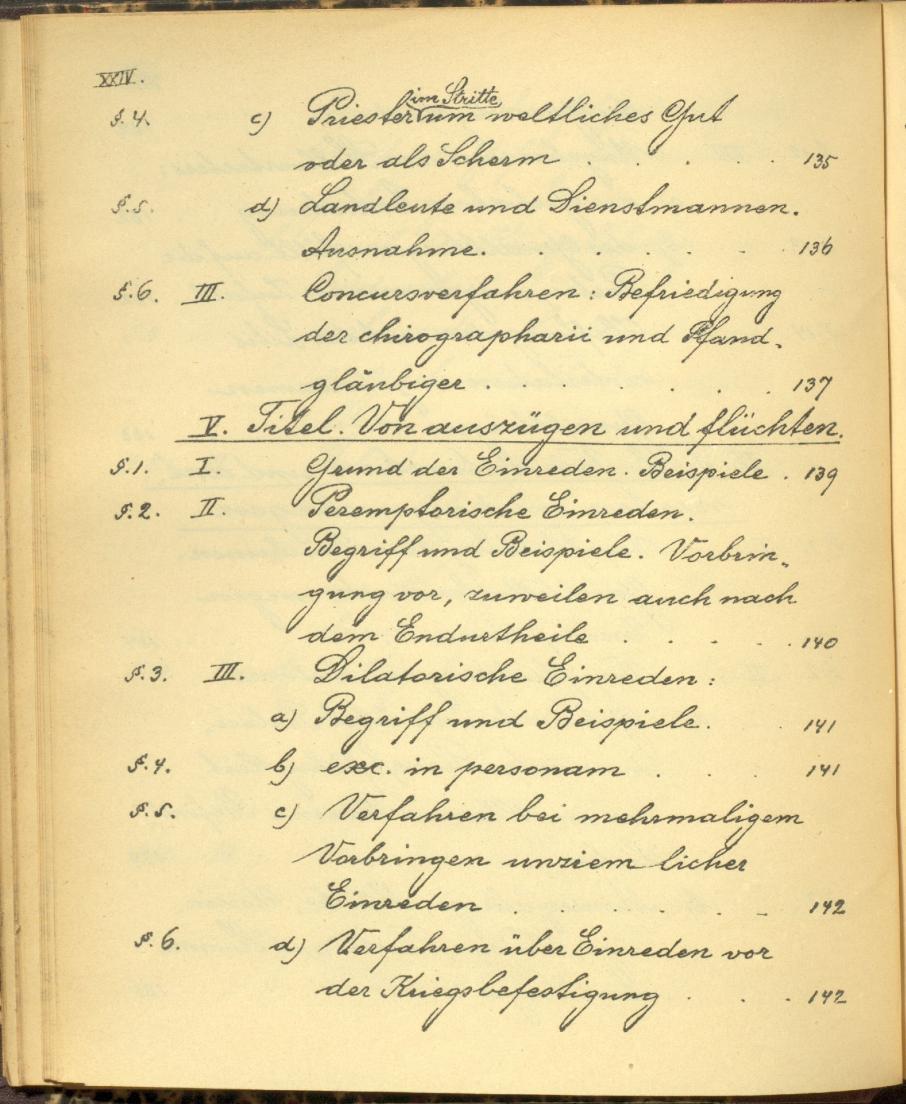 XXIV.
§. 4. c) Priester im Stritte, um weltliches Gut
oder als Scherm . . . . . 135
§. 5. d) Landleute und Dienstmannen.
Ausnahme. . . . . . . 136
§. 6. III. Concursverfahren: Befriedigung
der chirographarii und Pfand-
gläubiger . . . . . 137
V. Titel. Von auszügen und flüchten.
§. 1. I. Grund der Einreden. Beispiele . 139
§. 2. II. Peremptorische Einreden.
Begriff und Beispiele. Vorbrin-
gung vor, zuweilen auch nach
dem Endurtheile . . . . . 140
§. 3. III. Dilatorische Einreden:
a) Begriff und Beispiele. . 141
§. 4. b) exc. in personam . . . 141
§. 5. c) Verfahren bei mehrmaligem
Vorbringen unziem licher
Einreden . . . . . . 142
§. 6. d) Verfahren über Einreden vor
der Kriegsbefestigung . . . 142